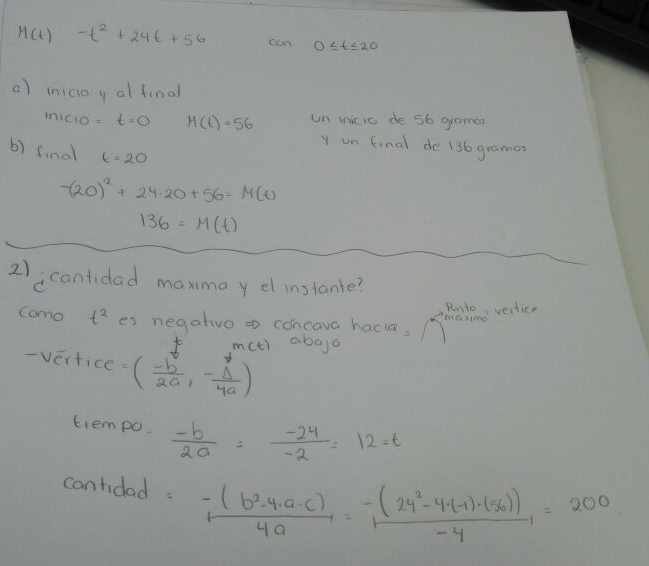 M(t) -t² + 24t + 56 con 0≤t≤20
a) inicio y al final
inicio = t=0 M(t)=56 un inicio de 56 gramos
y un final de 136 gramos
b) final t=20
-(20)² + 24·20 + 56 = M(t)
136 = M(t)
2) ¿cantidad maximo y el instante?
como t² es negativo ⇒ concava hacia abajo = ∩ Punto maximo = vertice
t m(t)
-vértice = (-b/2a, -Δ/4a)
tiempo. -b/2a = -24/-2 = 12=t
cantidad = -(b²-4·a·c)/4a = -(24²-4·(-1)·(56))/-4 = 200